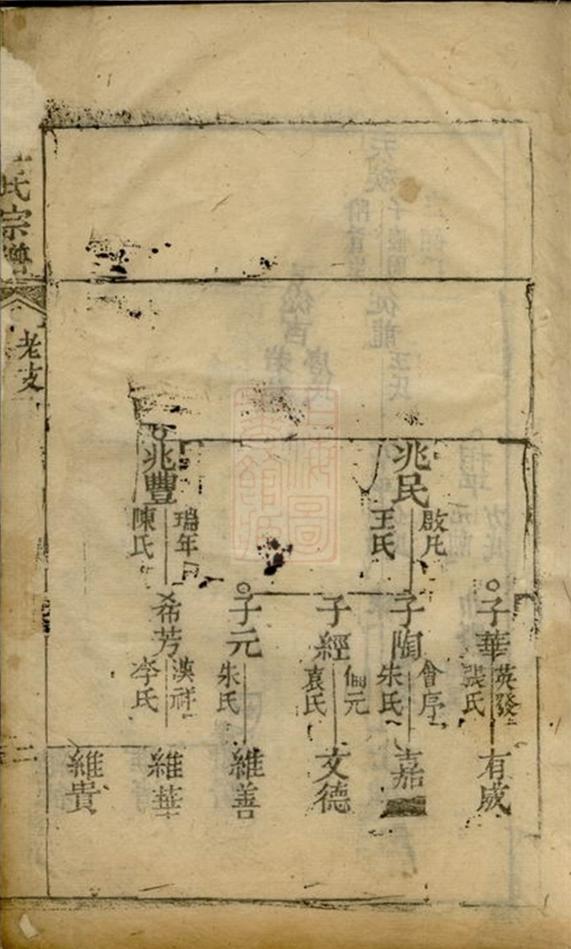 兆民
啟凡
王氏
兆豐
瑞年
陳氏
子華
英發
張氏
子陶
會序
朱氏
子經
袁氏
子元
朱氏
希芳
漢祥
李氏
有成
嘉
文德
維善
維華
維貴
氏宗譜
老支
二